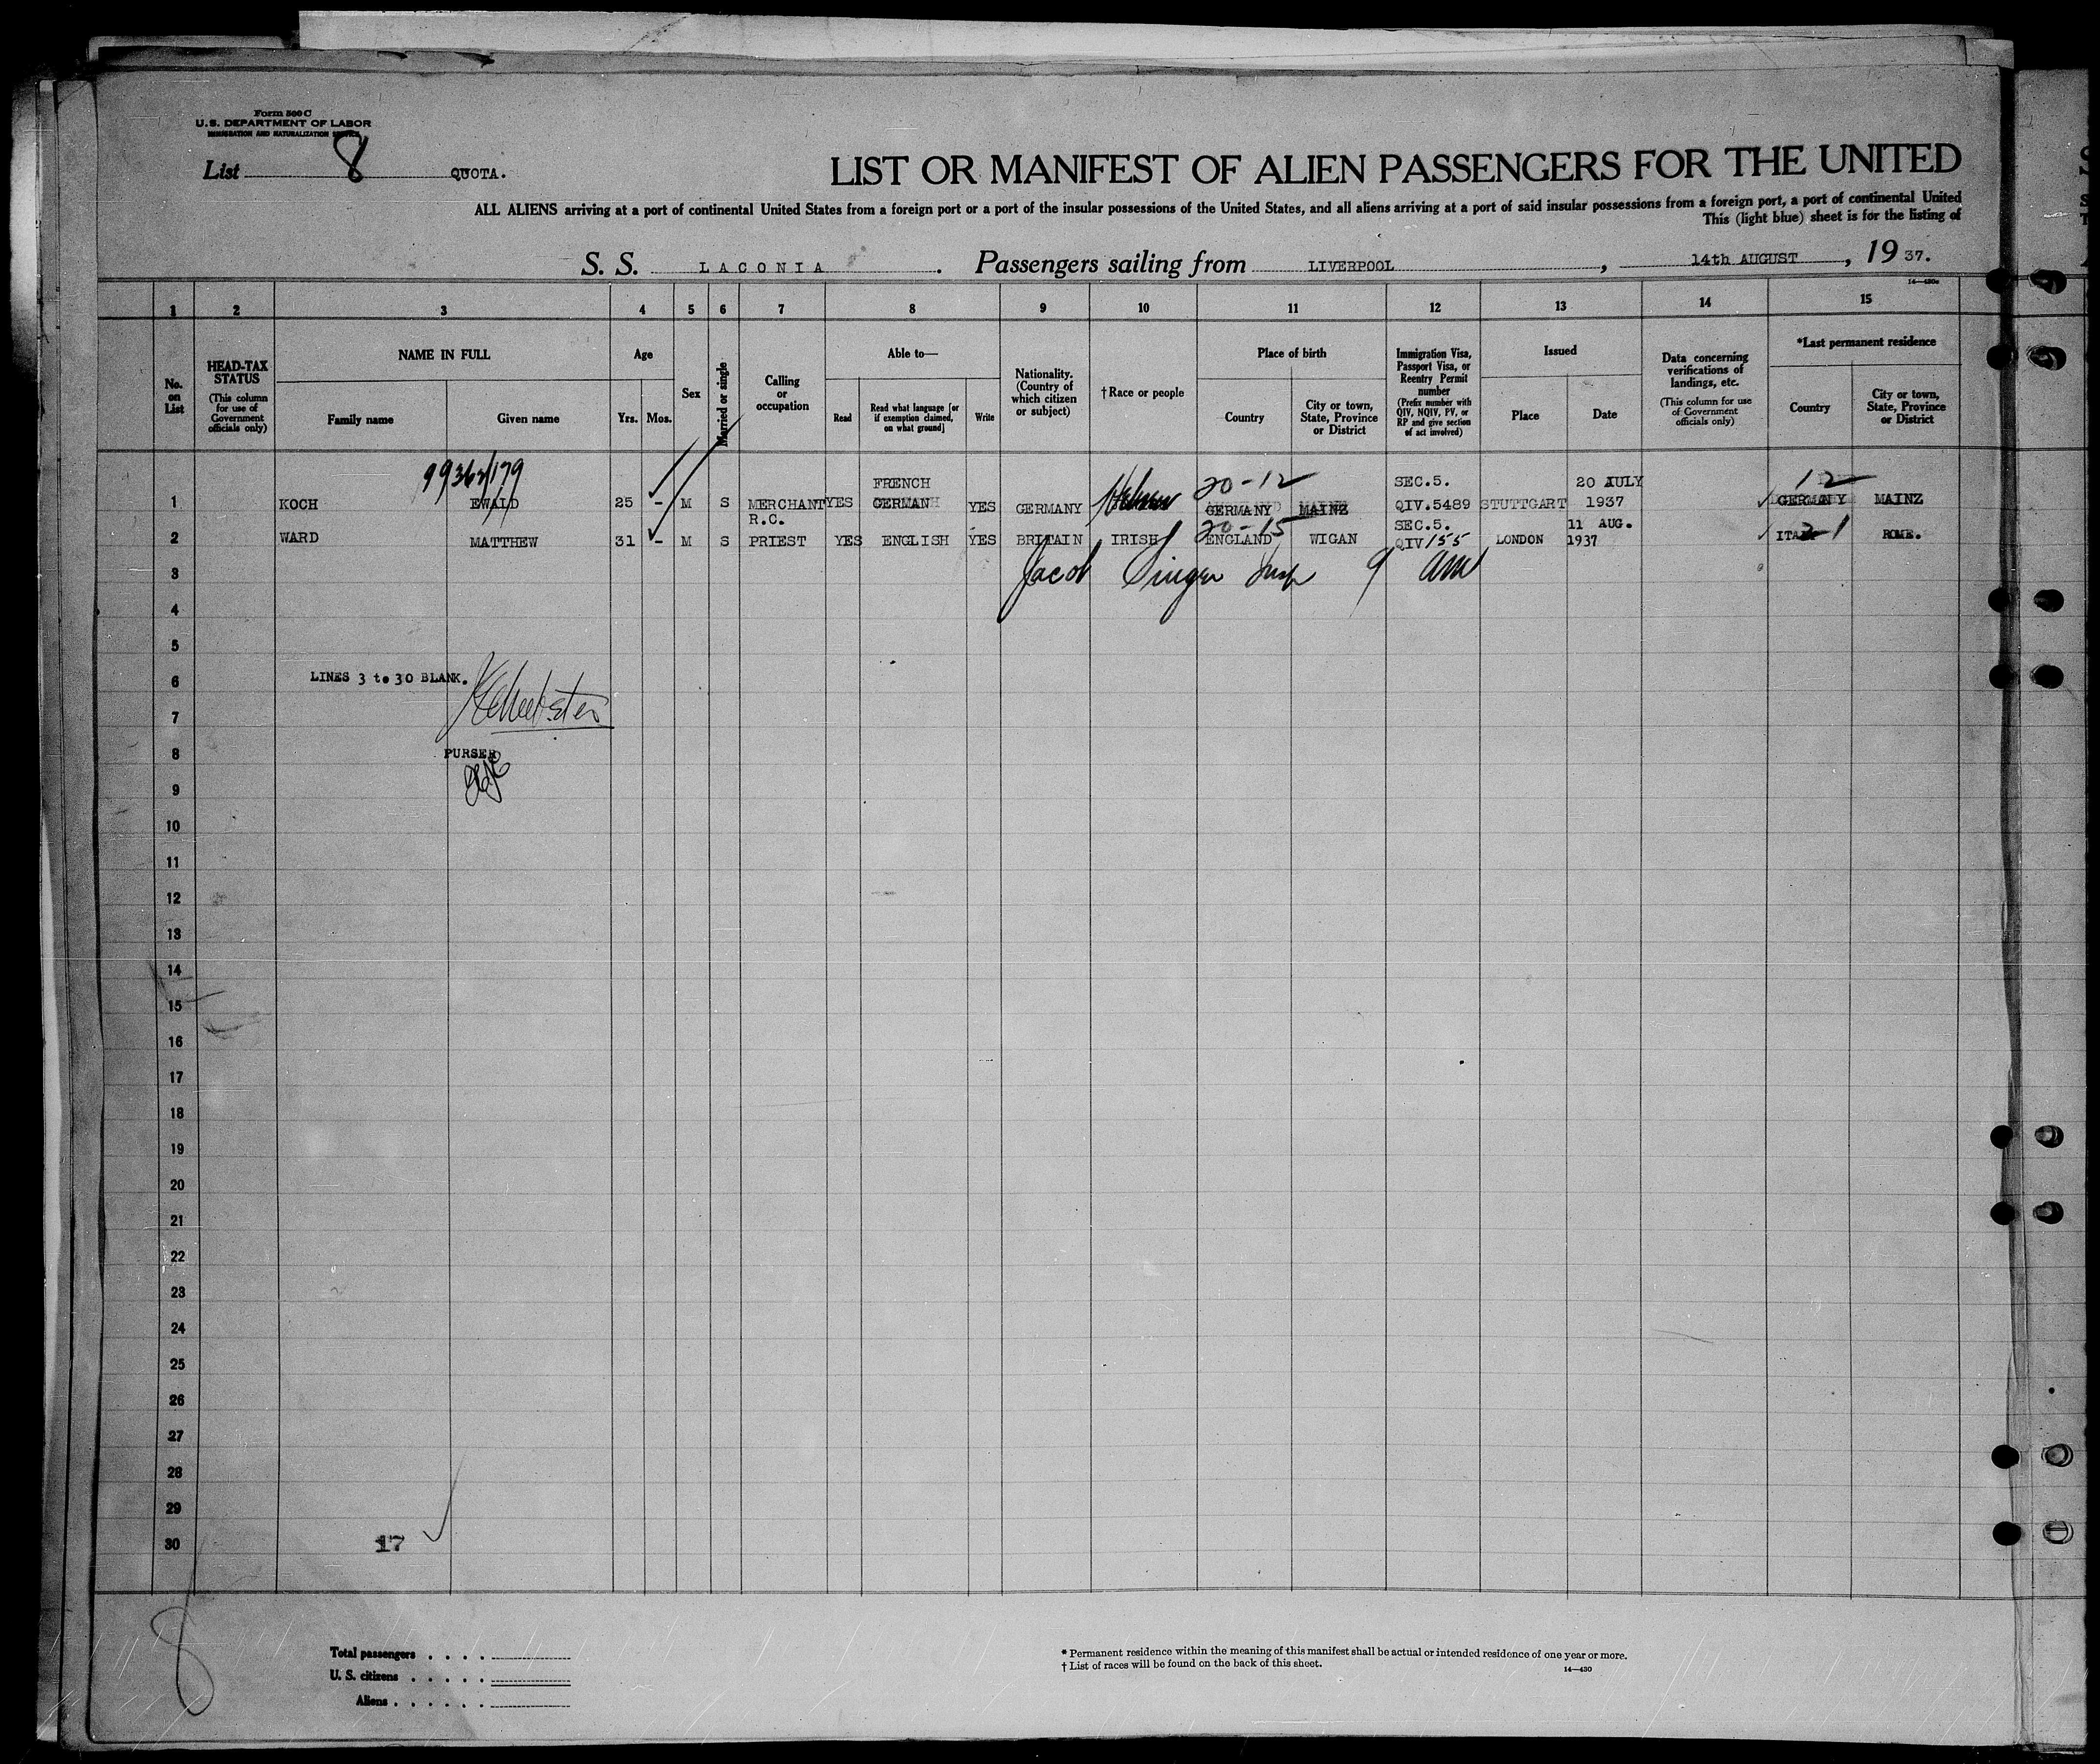 Form 500 C
U. S. DEPARTMENT OF LABOR
IMMIGRATION AND NATURALIZATION SERVICE
List 8 QUOTA.
LIST OR MANIFEST OF ALIEN PASSENGERS FOR THE UNITED
ALL ALIENS arriving at a port of continental United States from a foreign port or a port of the insular possessions of the United States, and all aliens arriving at a port of said insular possessions from a foreign port, a port of continental United
This (light blue) sheet is for the listing of
S. S. LACONIA. Passengers sailing from LIVERPOOL, 14th AUGUST, 19 37.
14—430c
1 2 3 4 5 6 7 8 9 10 11 12 13 14 15
No. on List
HEAD-TAX STATUS (This column for use of Government officials only)
NAME IN FULL
Family name Given name
Age
Yrs. Mos.
Sex
Married or single
Calling or occupation
Able to—
Read
Read what language [or if exemption claimed, on what ground]
Write
Nationality. (Country of which citizen or subject)
†Race or people
Place of birth
Country
City or town, State, Province or District
Immigration Visa, Passport Visa, or Reentry Permit number (Prefix number with QIV, NQIV, PV, or RP and give section of act involved)
Issued
Place Date
Data concerning verifications of landings, etc. (This column for use of Government officials only)
*Last permanent residence
Country
City or town, State, Province or District
FRENCH 20-12 SEC.5. 20 JULY 12
1 KOCH EWALD 25 - M S MERCHANT YES GERMAN YES GERMANY Hebrew GERMANY MAINZ QIV.5489 STUTTGART 1937 GERMANY MAINZ
R.C. 20-15 SEC.5. 11 AUG.
2 WARD MATTHEW 31 - M S PRIEST YES ENGLISH YES BRITAIN IRISH ENGLAND WIGAN QIV 155 LONDON 1937 ROME.
3 Jacob Singer Insp 9 am
4
5
6 LINES 3 to 30 BLANK.
7
8 PURSER
9
10
11
12
13
14
15
16
17
18
19
20
21
22
23
24
25
26
27
28
29
30 17
8
Total passengers
U. S. citizens
Aliens
* Permanent residence within the meaning of this manifest shall be actual or intended residence of one year or more.
† List of races will be found on the back of this sheet.
14—430